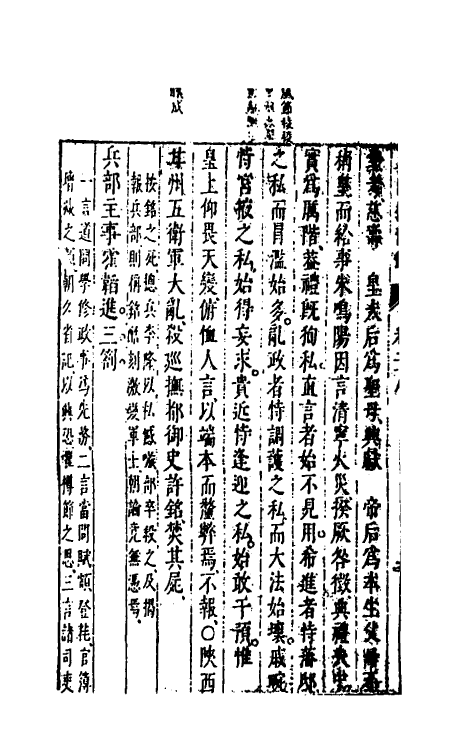 慈壽 皇太后爲聖母興獻 帝后爲本生父
稱皇而給事朱鳴陽因言清寧火災揆厥咎徵典禮
實爲厲階葢禮旣徇私直言者始不見用希進者恃藩邸
之私而冒濫始多亂政者恃調護之私而大法始壞戚畹
恃宮掖之私始得妄求貴近恃逢迎之私始敢干預惟
皇上仰畏天變俯恤人言以端本而釐弊焉不報○陝西
甘州五衛軍大亂殺巡撫都御史許銘焚其屍
按銘之死總兵李隆以私憾嗾部卒殺之及揭
報兵部則稱銘酷刻激變軍士朝論竟無憑焉
兵部主事霍韜進三劄
一言道問學修政事爲先務二言當問賦額登耗官簿
之朝夕省記以興恐懼撙節之思三言諸司吏